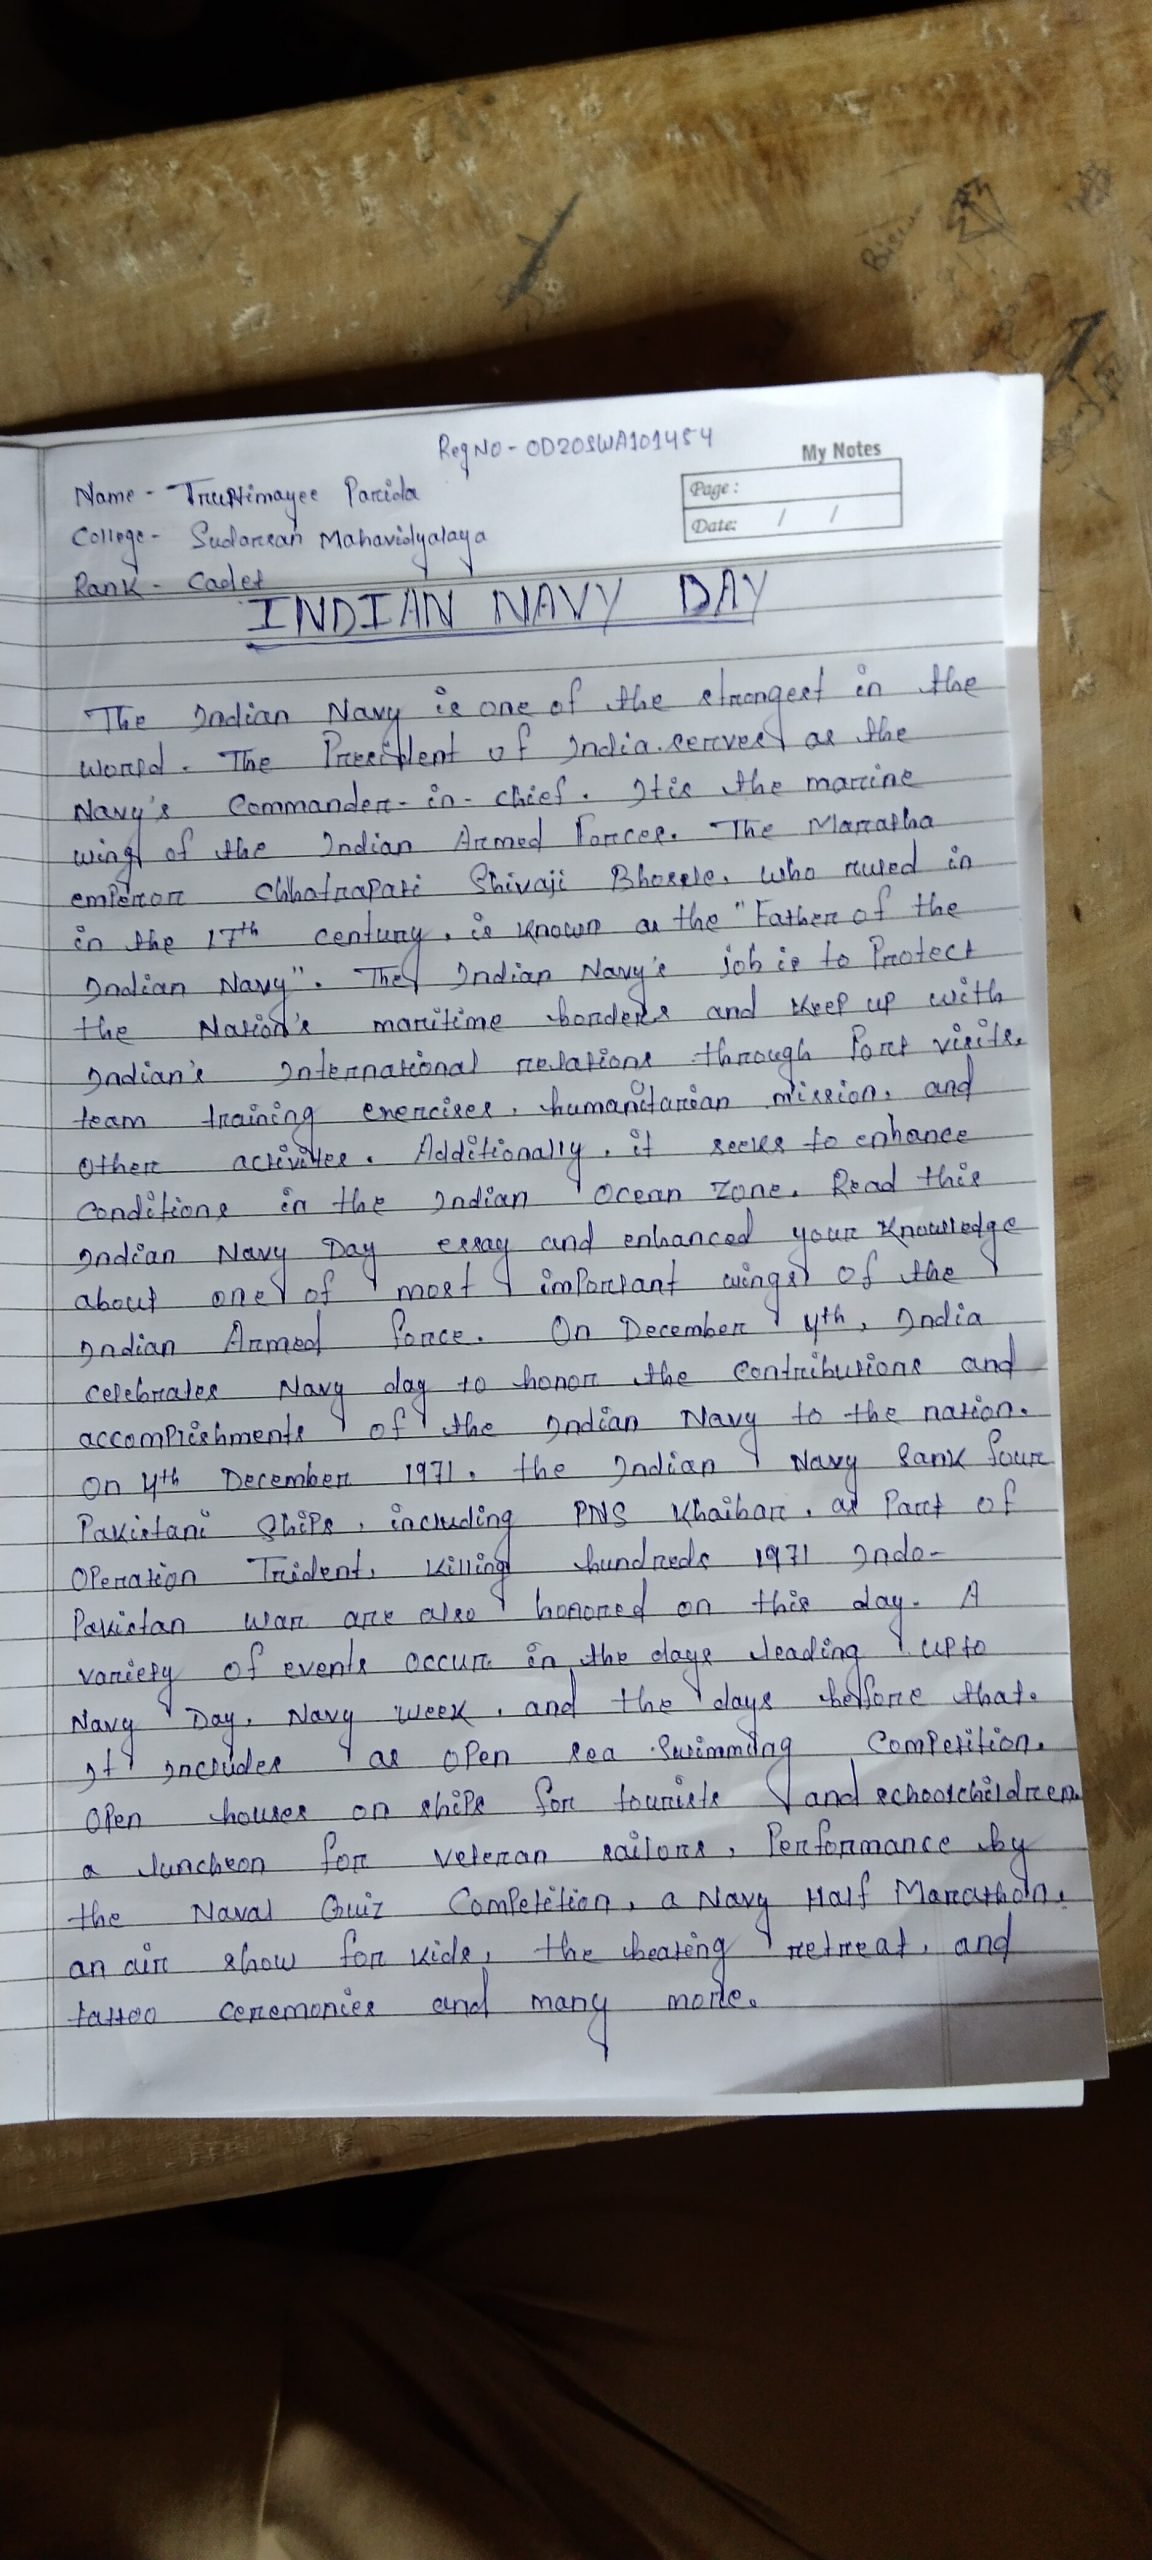 Reg No - OD20SWA101454
My Notes
Name - Truptimayee Parida
Page :
College - Sudarsan Mahavidyalaya
Date: / /
Rank - Cadet
INDIAN NAVY DAY
The Indian Navy is one of the strongest in the
World. The President of India serves as the
Navy's Commander-in-chief. It is the marine
wing of the Indian Armed Forces. The Maratha
emperor Chhatrapati Shivaji Bhosale, who ruled in
in the 17th century, is known as the "Father of the
Indian Navy". The Indian Navy's job is to Protect
the Nation's maritime borders and keep up with
Indian's International relations through Port visits,
team training exercises, humanitarian mission, and
other activities. Additionally, it seeks to enhance
conditions in the Indian Ocean zone. Read this
Indian Navy Day essay and enhanced your knowledge
about one of most important wings of the
Indian Armed force. On December 4th, India
celebrates Navy day to honor the contributions and
accomplishments of the Indian Navy to the nation.
On 4th December 1971, the Indian Navy Sank four
Pakistani Ships, including PNS Khaibar, as Part of
Operation Trident, killing hundreds 1971 Indo-
Pakistan war are also honored on this day. A
variety of events occur in the days leading up to
Navy Day, Navy week, and the days before that.
It includes as open sea swimming Competition,
Open houses on ships for tourists and schoolchildren,
a luncheon for veteran sailors, Performance by
the Naval Quiz Competition, a Navy Half Marathon,
an air show for kids, the beating retreat, and
tattoo ceremonies and many more.